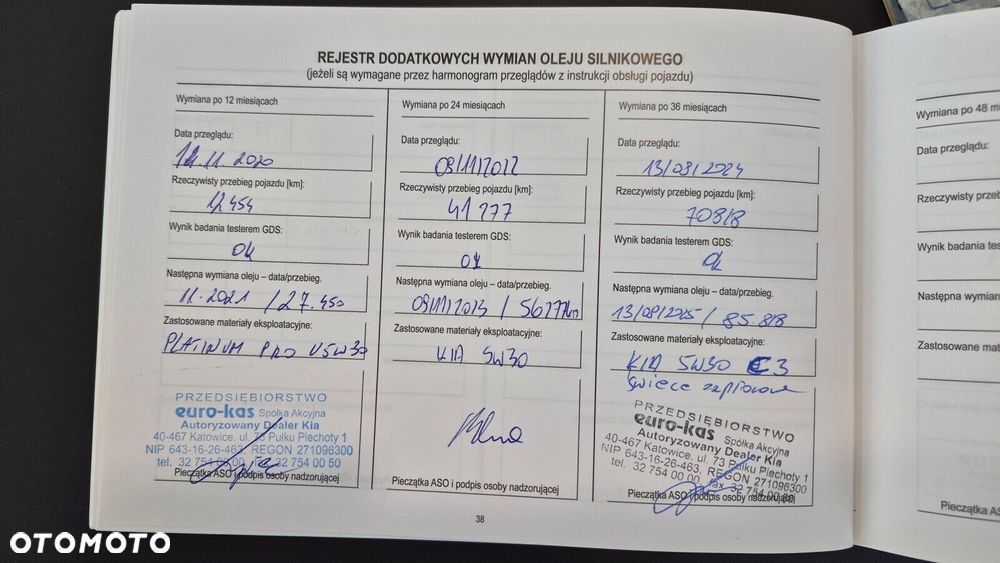 REJESTR DODATKOWYCH WYMIAN OLEJU SILNIKOWEGO
(jeżeli są wymagane przez harmonogram przeglądów z instrukcji obsługi pojazdu)
Wymiana po 12 miesiącach
Data przeglądu:
12.11.2020
Rzeczywisty przebieg pojazdu [km]:
12 454
Wynik badania testerem GDS:
Ok
Następna wymiana oleju – data/przebieg.
11.2021 / 27.450
Zastosowane materiały eksploatacyjne:
PLATINUM PRO V 5W30
PRZEDSIĘBIORSTWO
euro-kas Spółka Akcyjna
Autoryzowany Dealer Kia
40-467 Katowice. ul. 73 Pułku Piechoty 1
NIP 643-16-26-463. REGON 271096300
tel. 32 754 00 00, fax 32 754 00 50
Pieczątka ASO i podpis osoby nadzorującej
Wymiana po 24 miesiącach
Data przeglądu:
09/11/2022
Rzeczywisty przebieg pojazdu [km]:
41 277
Wynik badania testerem GDS:
Ok
Następna wymiana oleju – data/przebieg.
09/11/2023 / 56277km
Zastosowane materiały eksploatacyjne:
KIA 5W30
Pieczątka ASO i podpis osoby nadzorującej
Wymiana po 36 miesiącach
Data przeglądu:
13/08/2024
Rzeczywisty przebieg pojazdu [km]:
70818
Wynik badania testerem GDS:
Ok
Następna wymiana oleju – data/przebieg.
13/08/2025 / 85.818
Zastosowane materiały eksploatacyjne:
KIA 5W30 C3
świece zapłonowe
PRZEDSIĘBIORSTWO
euro-kas Spółka Akcyjna
Autoryzowany Dealer Kia
40-467 Katowice. ul. 73 Pułku Piechoty 1
NIP 643-16-26-463. REGON 271096300
tel. 32 754 00 00, fax 32 754 00 50
Pieczątka ASO i podpis osoby nadzorującej
38
Wymiana po 48 mi
Data przeglądu:
Rzeczywisty przebieg
Wynik badania tes
Następna wymian
Zastosowane mat
Pieczątka AS
OTOMOTO